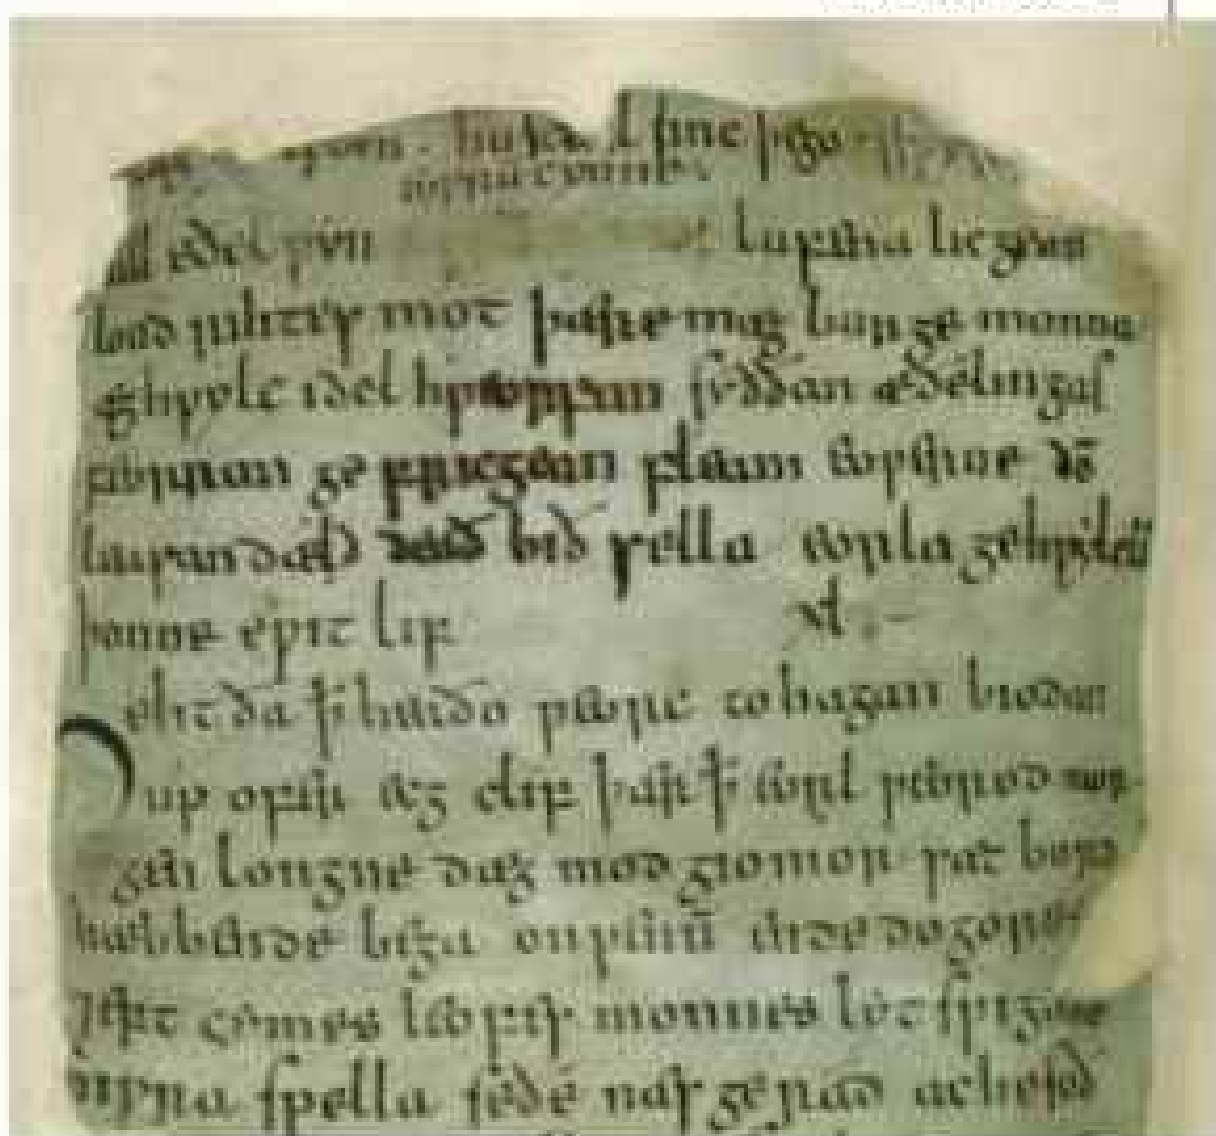 hu sceal sinc þego
eowrum cynne
eðel wyn lufena licgean
lond rihtes mot þære mæg burge monna
æghwylc idel hweorfan syððan æðelingas
feorran ge fricgean fleam eowerne dō
leasan dæd deað bið sella eorla gehwylcū
þonne edwit lif xl :-
Heht ða ꝥ heaðo weorc to hagan biodan
up ofer ecg clif þær ꝥ eorl weorod mor
gen longne dæg mod giomor sæt bord
hæbbende bega on wenū ende dogores
⁊ eft cymes leofes monnes lyt swigode
niwra spella se ðe næs ge rad ac he soð